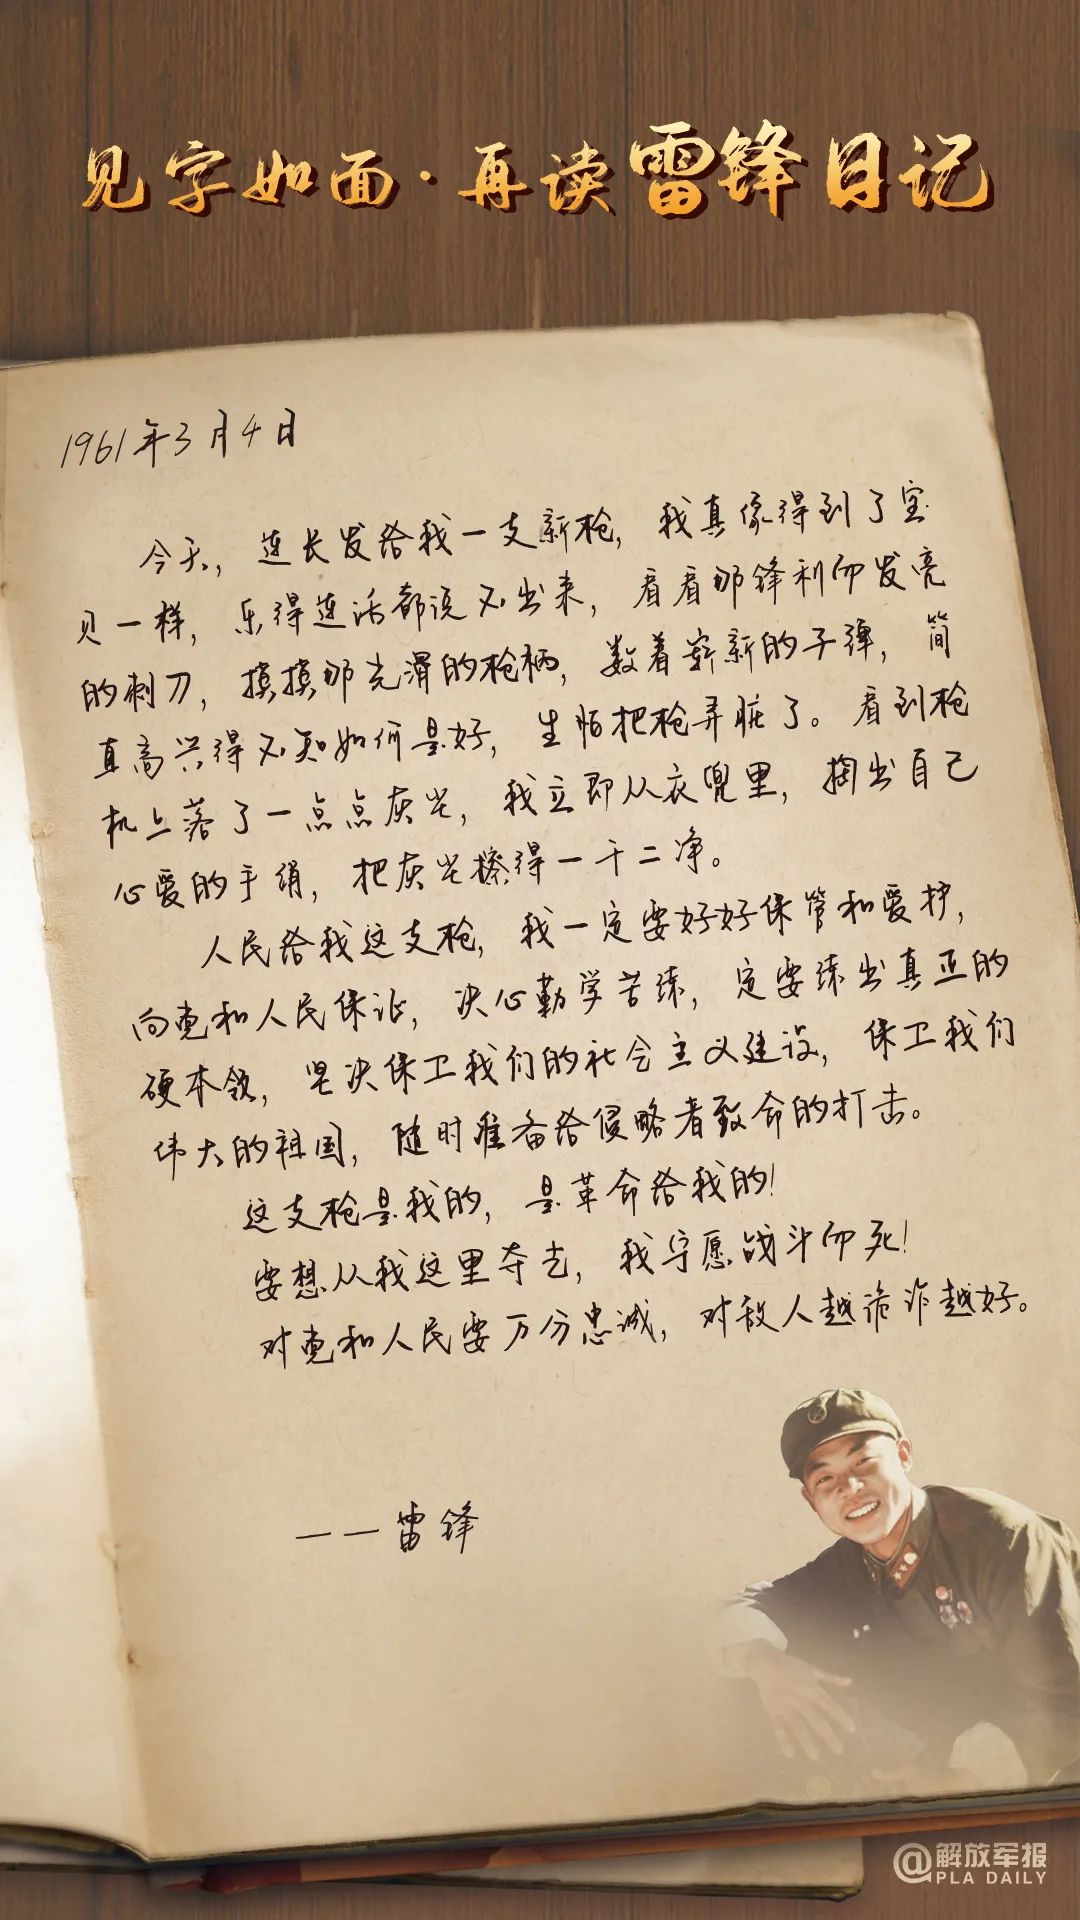 见字如面·再读雷锋日记
1961年3月4日
今天，连长发给我一支新枪，我真像得到了宝
贝一样，乐得连话都说不出来，看看那锋利而发亮
的刺刀，摸摸那光滑的枪柄，数着崭新的子弹，简
直高兴得不知如何是好，生怕把枪弄脏了。看到枪
机上落了一点点灰尘，我立即从衣兜里，掏出自己
心爱的手绢，把灰尘擦得一干二净。
人民给我这支枪，我一定要好好保管和爱护，
向党和人民保证，决心勤学苦练，定要练出真正的
硬本领，坚决保卫我们的社会主义建设，保卫我们
伟大的祖国，随时准备给侵略者致命的打击。
这支枪是我的，是革命给我的！
要想从我这里夺去，我宁愿战斗而死！
对党和人民要万分忠诚，对敌人越诡诈越好。
——雷锋
@解放军报
PLA DAILY